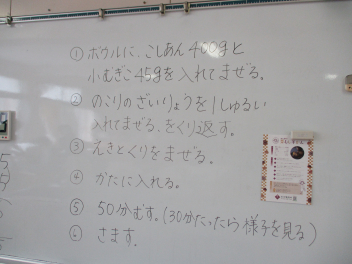 ① ボウルに、こしあん400gと
小むぎこ45gを入れてまぜる。
② のこりのざいりょうを1しゅるい
入れてまぜる、をくり返す。
③ えきとくりをまぜる。
④ かたに入れる。
⑤ 50分むす。(30分たったら様子を見る)
⑥ さます。